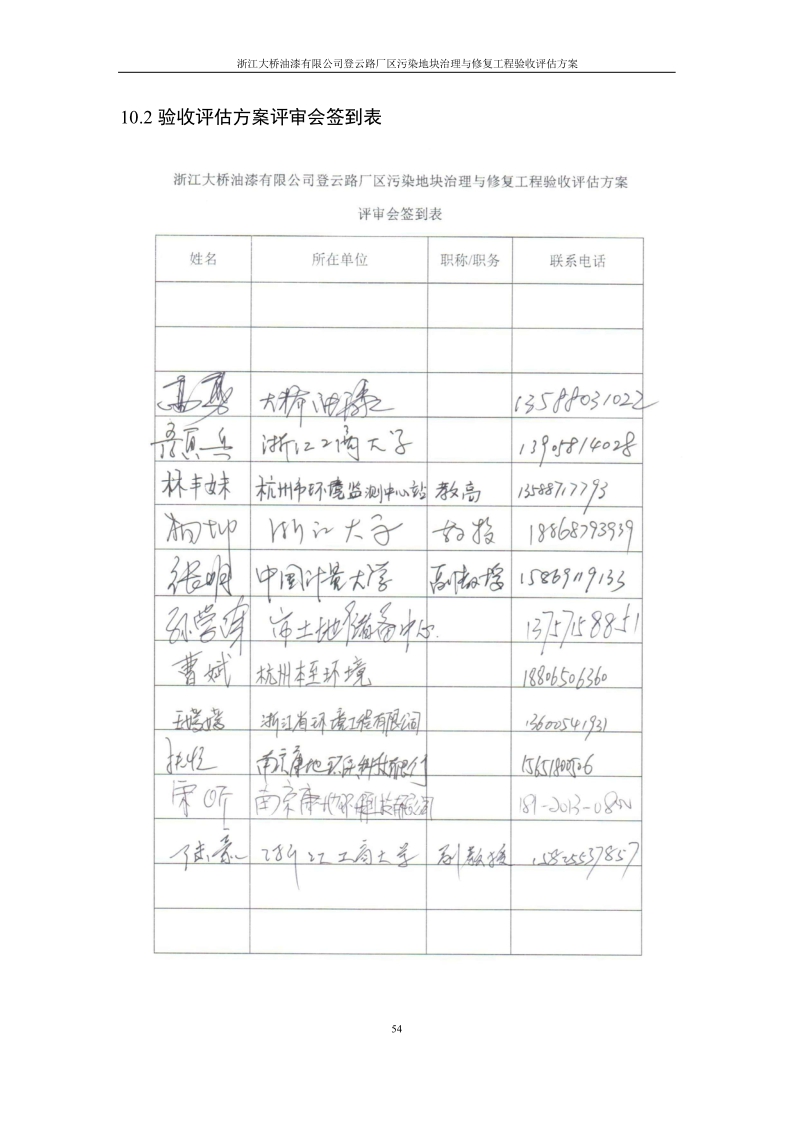 浙江大桥油漆有限公司登云路厂区污染地块治理与修复工程验收评估方案
10.2 验收评估方案评审会签到表
浙江大桥油漆有限公司登云路厂区污染地块治理与修复工程验收评估方案
评审会签到表
姓名 所在单位 职称/职务 联系电话
大桥油漆 13588031022
浙江工商大学 13905814028
林丰妹 杭州市环境监测中心站 教高 13588717793
杨坤 浙江大学 教授 18868793939
张明 中国计量大学 副教授 15869119133
市土地储备中心 13757158851
曹斌 杭州本至环境 18806506360
王嫦嫦 浙江省环境工程有限公司 13600541931
南京康地环保科技有限公司
南京康地环保科技有限公司
陆豪 浙江工商大学 副教授
54